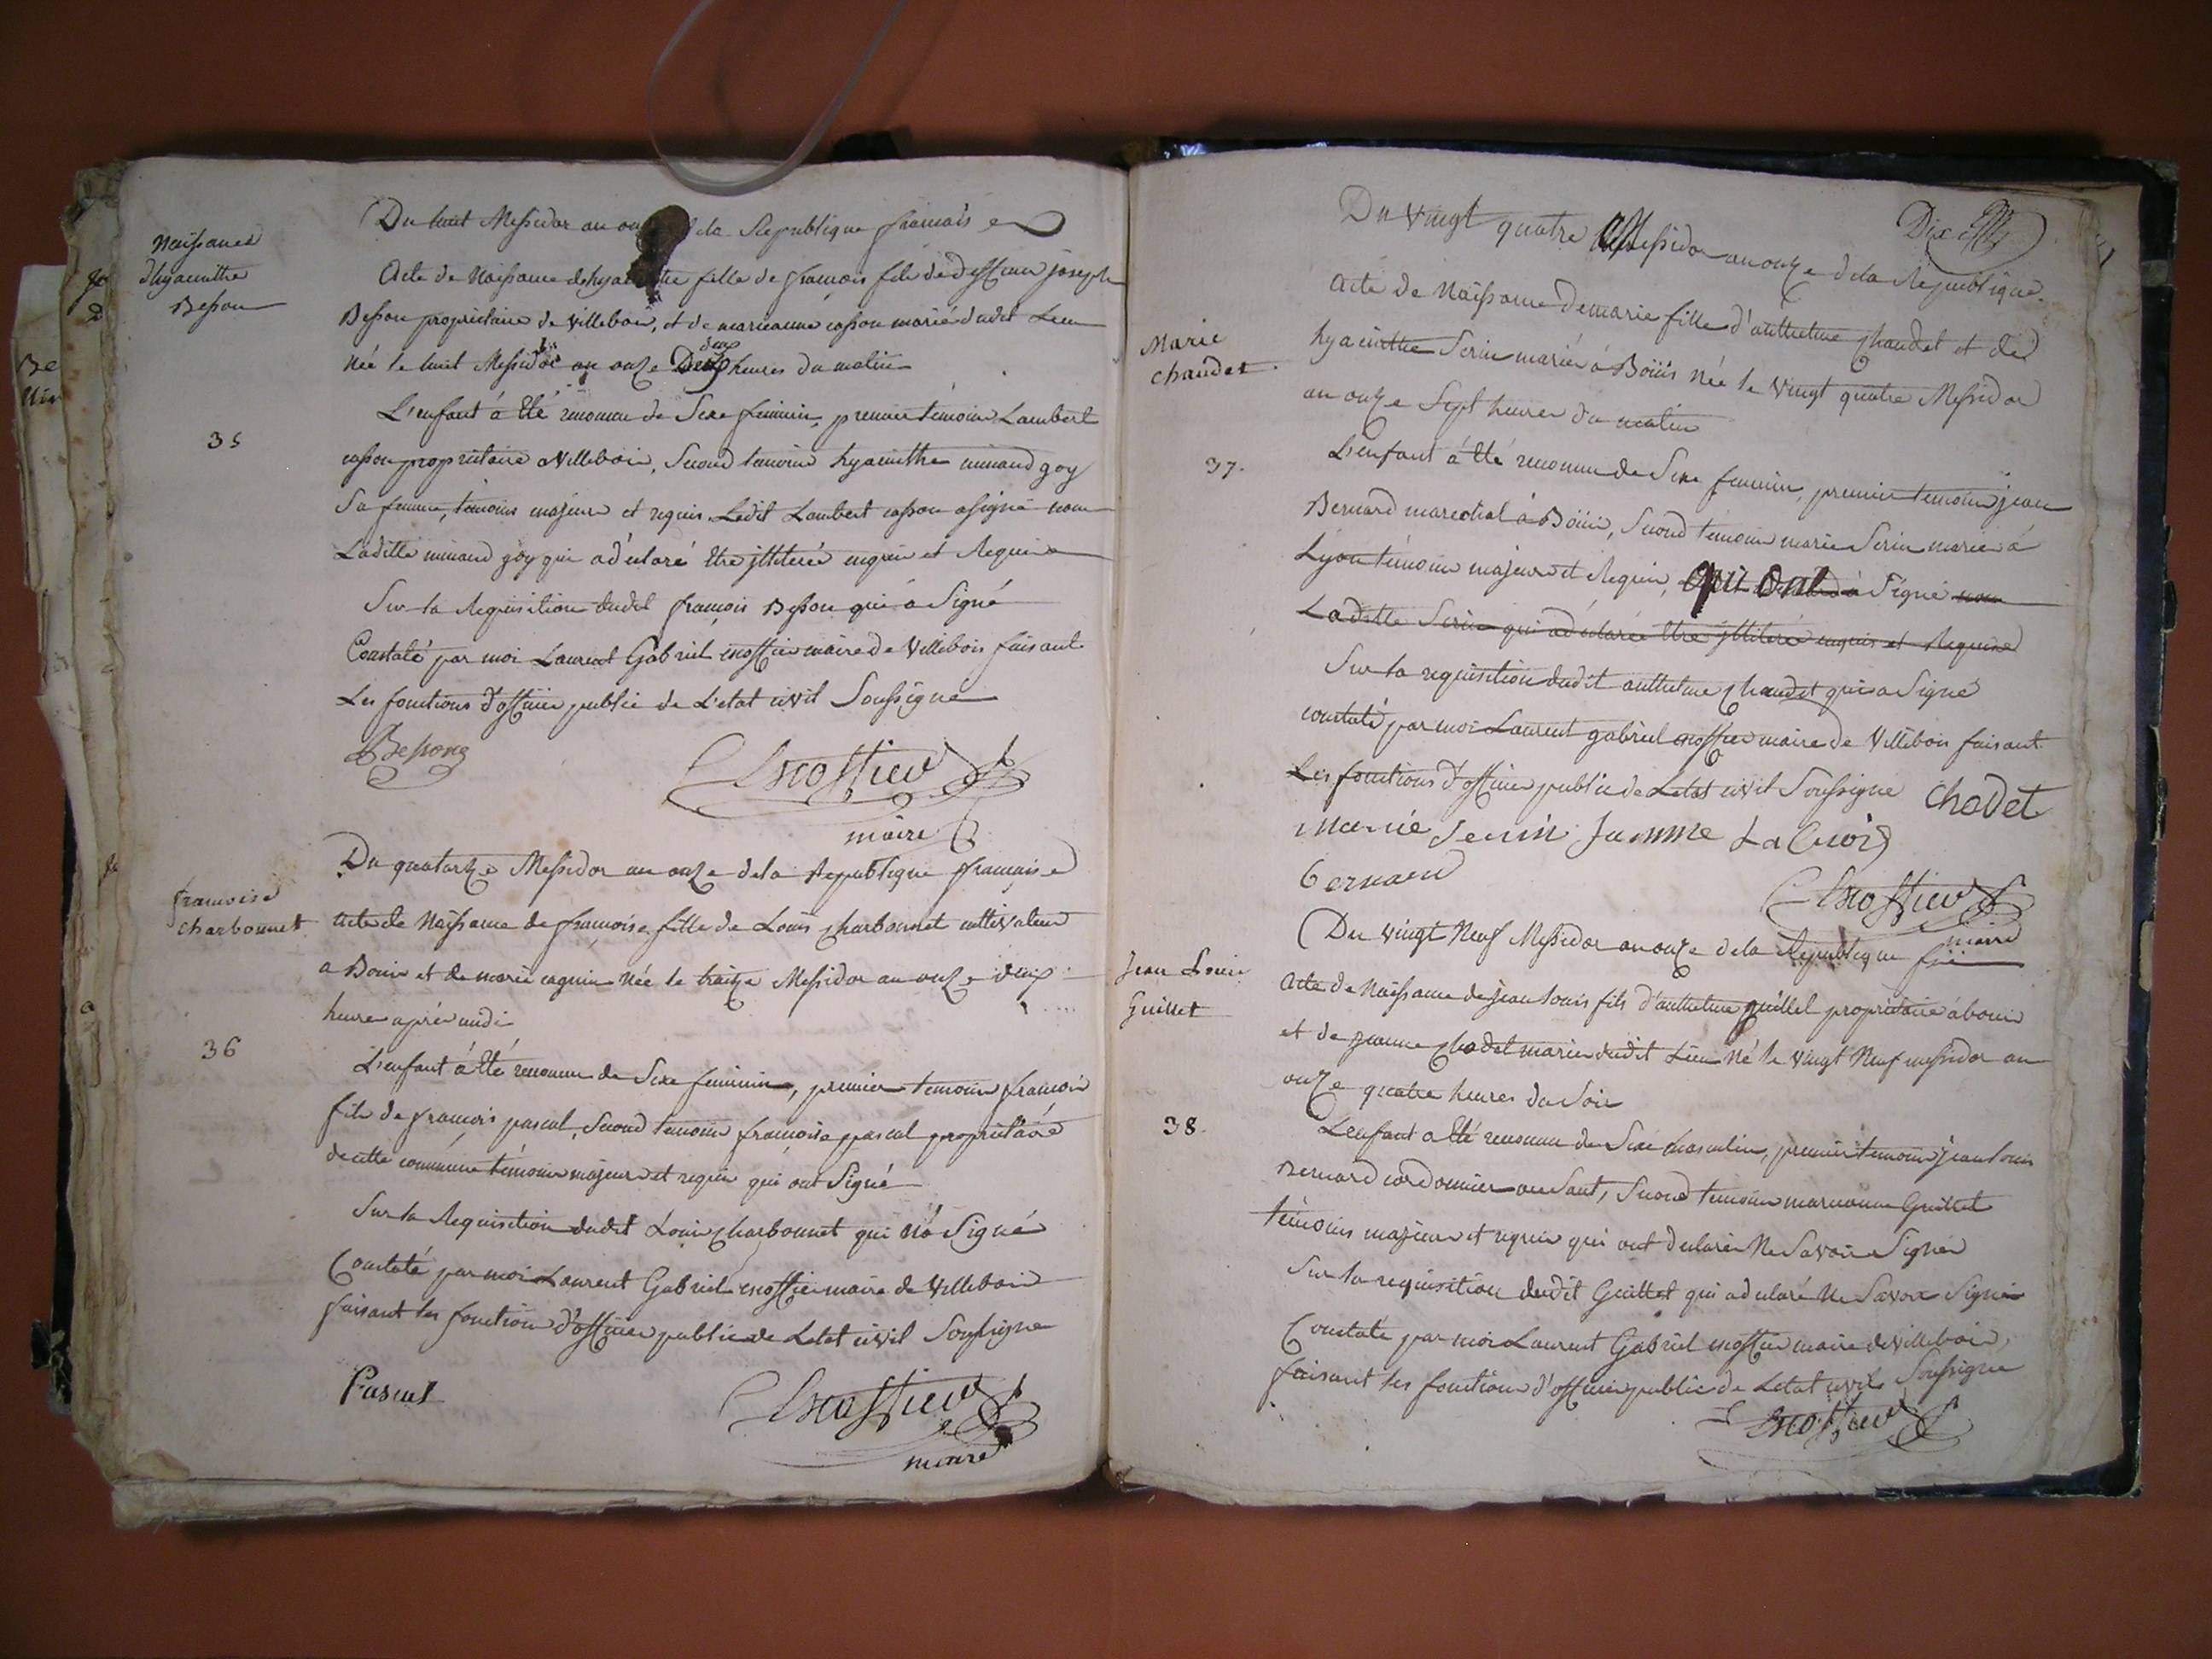 Naissance
d'hyacinthe
Besson
35
Du huit Messidor an onze de la Republique francaise
Acte de Naissance de hyacinthe fille de francois fils de deffunt joseph
Besson proprietaire de villebois, et de marieanne casson mariés dudit Lieu
née le huit Messidor an onze deux heures du matin
L'enfant á été reconnu de Sexe feminin, premier temoin Lambert
casson proprietaire a Villebois, Second temoins hyacinthe minand goy
Sa femme, temoins majeurs et requis Ledit Lambert casson a signé non
Laditte minand goy qui a déclaré être illiterée enquise et Requise
Sur la Requisition dudit françois Besson qui a Signé
Constaté par moi Laurent Gabriel escoffier maire de Villebois faisant
Les fonctions d'officier public de L'etat civil Soussigné
Besson
Escoffier
maire
francoise
charbonnet
36
Du quatorze Messidor an onze de la Republique française
acte de Naissance de françoise fille de Louis charbonnet cultivateur
a Bouis et de marie cagnin née le traize Messidor an onze deux
heures aprés midi
L'enfant á été reconnu de Sexe feminin, premier temoin francois
fils de francois pascal, Second temoin francoise pascal proprietaire
de cette commune temoins majeurs et requis qui ont Signé
Sur la Requisition dudit Louis charbonnet qui n'a Signé
Constaté par moi Laurent Gabriel escoffier maire de Villebois
faisant les fonction d'officier public de L'etat civil Soussigne
Pascal
Escoffier
maire
Dix
Marie
chaudet
37.
Du vingt quatre Messidor an onze de la Republique
Acte de Naissance de marie fille d'anthelme chaudet et de
hyacinthe Serin mariés á Boüis née le vingt quatre Messidor
an onze Sept heures du matin
L'enfant á été reconnu de Sexe feminin, premier temoin jean
Bernard marechal á Boüis, Second temoin marie Serin mariée á
Lyon temoins majeurs et Requis, qui ont Signé non
Laditte Serin qui a declarée être illiterée enquise et Requise
Sur la requisition dudit anthelme chaudet qui a Signé
constaté par moi Laurent gabriel escoffier maire de Villebois faisant
Les fonctions d'officier public de L'etat civil Soussigne Chodet
marie Serin famme La Croix
bernard
Escoffier
maire
Jean Louis
Guillet
38.
Du vingt Neuf Messidor an onze de la Republique
Acte de Naissance de jean louis fils d'anthelme guillet proprietaire á bouis
et de jeanne chodet mariés dudit Lieu né le vingt Neuf messidor an
onze quatre heures du Soir
L'enfant a été reconnu de Sexe masculin, premier temoin jean louis
Bernard cordonnier au Saut, Second temoin marianne Guillet
temoins majeurs et requis qui ont declarés Ne Savoir Signer
Sur la requisition dudit Guillet qui a declaré Ne Savoir Signer
Constaté par moi Laurent Gabriel escoffier maire de villebois
faisant les fonctions d'officier public de L'etat civil Soussigne
Escoffier